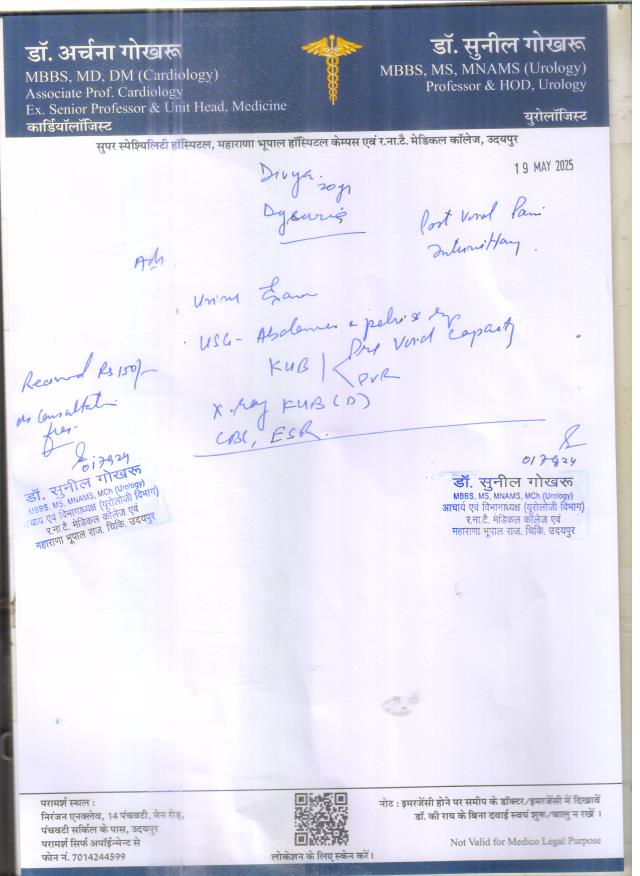 डॉ. अर्चना गोखरू
MBBS, MD, DM (Cardiology)
Associate Prof. Cardiology
Ex. Senior Professor & Unit Head, Medicine
कार्डियॉलॉजिस्ट
डॉ. सुनील गोखरू
MBBS, MS, MNAMS (Urology)
Professor & HOD, Urology
युरोलॉजिस्ट
सुपर स्पेश्यिलिटी हॉस्पिटल, महाराणा भूपाल हॉस्पिटल केम्पस एवं र.ना.टै. मेडिकल कॉलेज, उदयपुर
19 MAY 2025
Divya
20y
Dysuria
Post Void Pain
Adv
Urine Exam
USG- Abdomen & pelvis
KUB
Pre Void Capacity
PVR
X-ray KUB (D)
CBC, ESR.
Received Rs 150/-
as Consultation
fees.
017924
डॉ. सुनील गोखरू
MBBS, MS, MNAMS, MCh (Urology)
आचार्य एवं विभागाध्यक्ष (यूरोलॉजी विभाग)
र.ना.टै. मेडिकल कॉलेज एवं
महाराणा भूपाल राज. चिकि. उदयपुर
017924
डॉ. सुनील गोखरू
MBBS, MS, MNAMS, MCh (Urology)
आचार्य एवं विभागाध्यक्ष (यूरोलॉजी विभाग)
र.ना.टै. मेडिकल कॉलेज एवं
महाराणा भूपाल राज. चिकि. उदयपुर
परामर्श स्थल :
निरंजन एनक्लेव, 14 पंचवटी, मेन रोड़,
पंचवटी सर्किल के पास, उदयपुर
परामर्श सिर्फ अपॉईन्मेन्ट से
फोन नं. 7014244599
लोकेशन के लिए स्केन करें।
नोट : इमरजेंसी होने पर समीप के डॉक्टर/इमरजेंसी में दिखावें
डॉ. की राय के बिना दवाई स्वयं शुरू/चालु न रखें।
Not Valid for Medico Legal Purpose